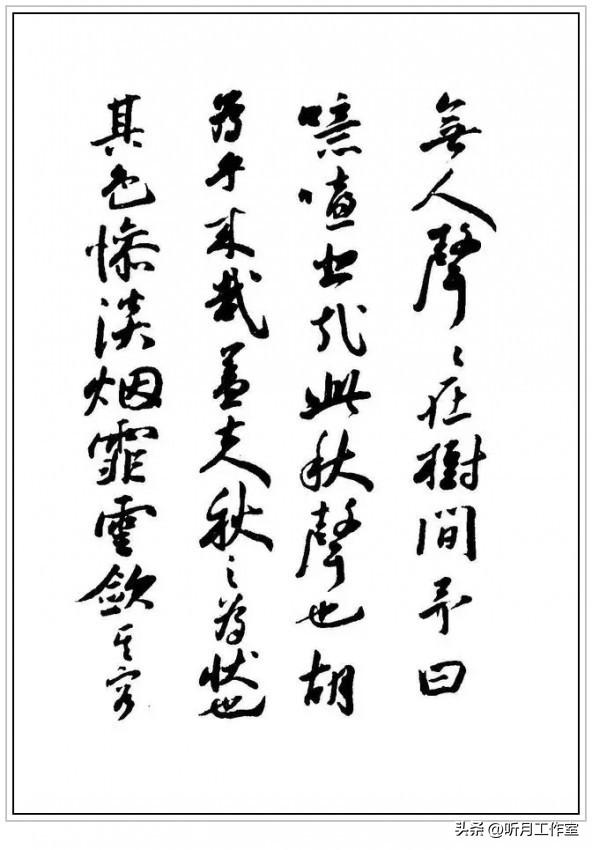 無人聲〻在樹間予曰
噫嘻悲哉此秋聲也胡
為乎来哉盖夫秋之為狀也
其色慘淡烟霏雲歛其容
头条 @听月工作室